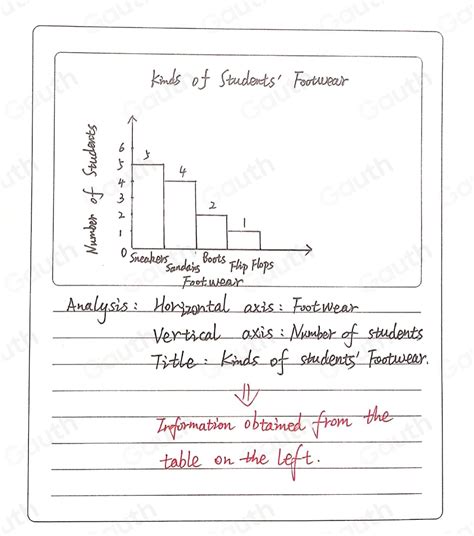 Kinds of Students' Footwear
Number of Students
6
5
4
3
2
1
0
5
4
2
1
Sneakers
Sandals
Boots
Flip Flops
Footwear
Analysis: Horizontal axis: Footwear
Vertical axis: Number of students
Title: Kinds of students' Footwear.
⇓
Information obtained from the
table on the left.
Gauth